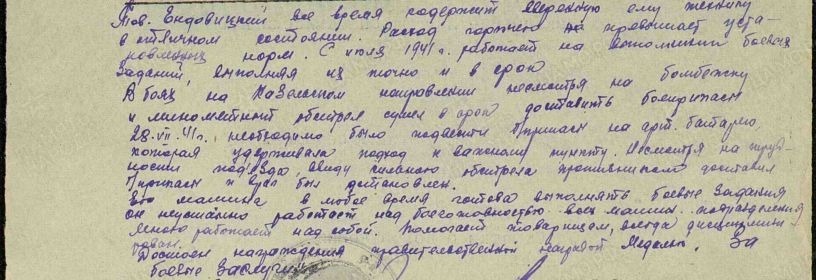 Тов. Ендовицкий все время содержит вверенную ему технику
в отличном состоянии. Расход горючего не превышает уста-
новленных норм. С июля 1941 г. работает на выполнении боевых
заданий, выполняя их точно и в срок
В боях на направлении несмотря на бомбежку
и минометный обстрел сумел в срок доставить боеприпасы
28.VII.41 г. необходимо было подвезти б/припасы на арт. батарею,
которая удерживала подход к важному пункту. Несмотря на труд-
ности под'езда, ввиду сильного обстрела противником доставил
б/припасы и враг был остановлен.
Его машина в любое время готова выполнять боевые задания
он неустанно работает над боеготовностью всех машин подразделения
Много работает над собой. Помогает товарищам, всегда дисциплини-
рован.
Достоин награждения правительственной наградой Медалью. За
боевые заслуги